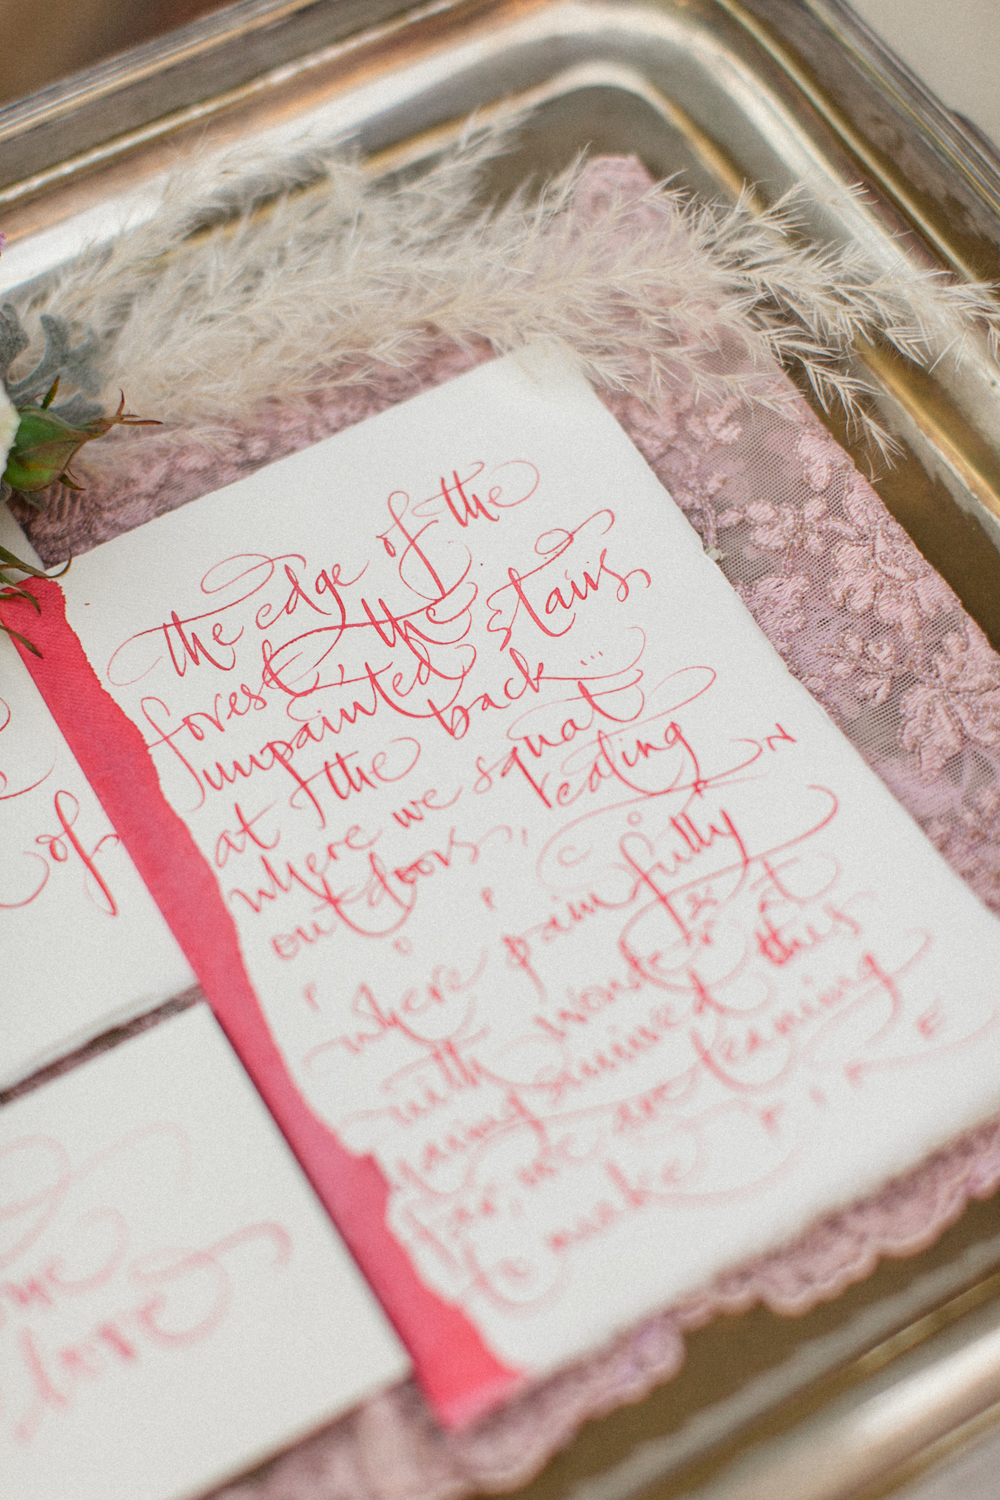 of
love
the edge of the
forest, the
unpainted stairs
at the back...
where we squat
outdoors, eating
P O P C O R N
where painfully &
with wonder at
having survived this
far, we are learning
to make F I R E